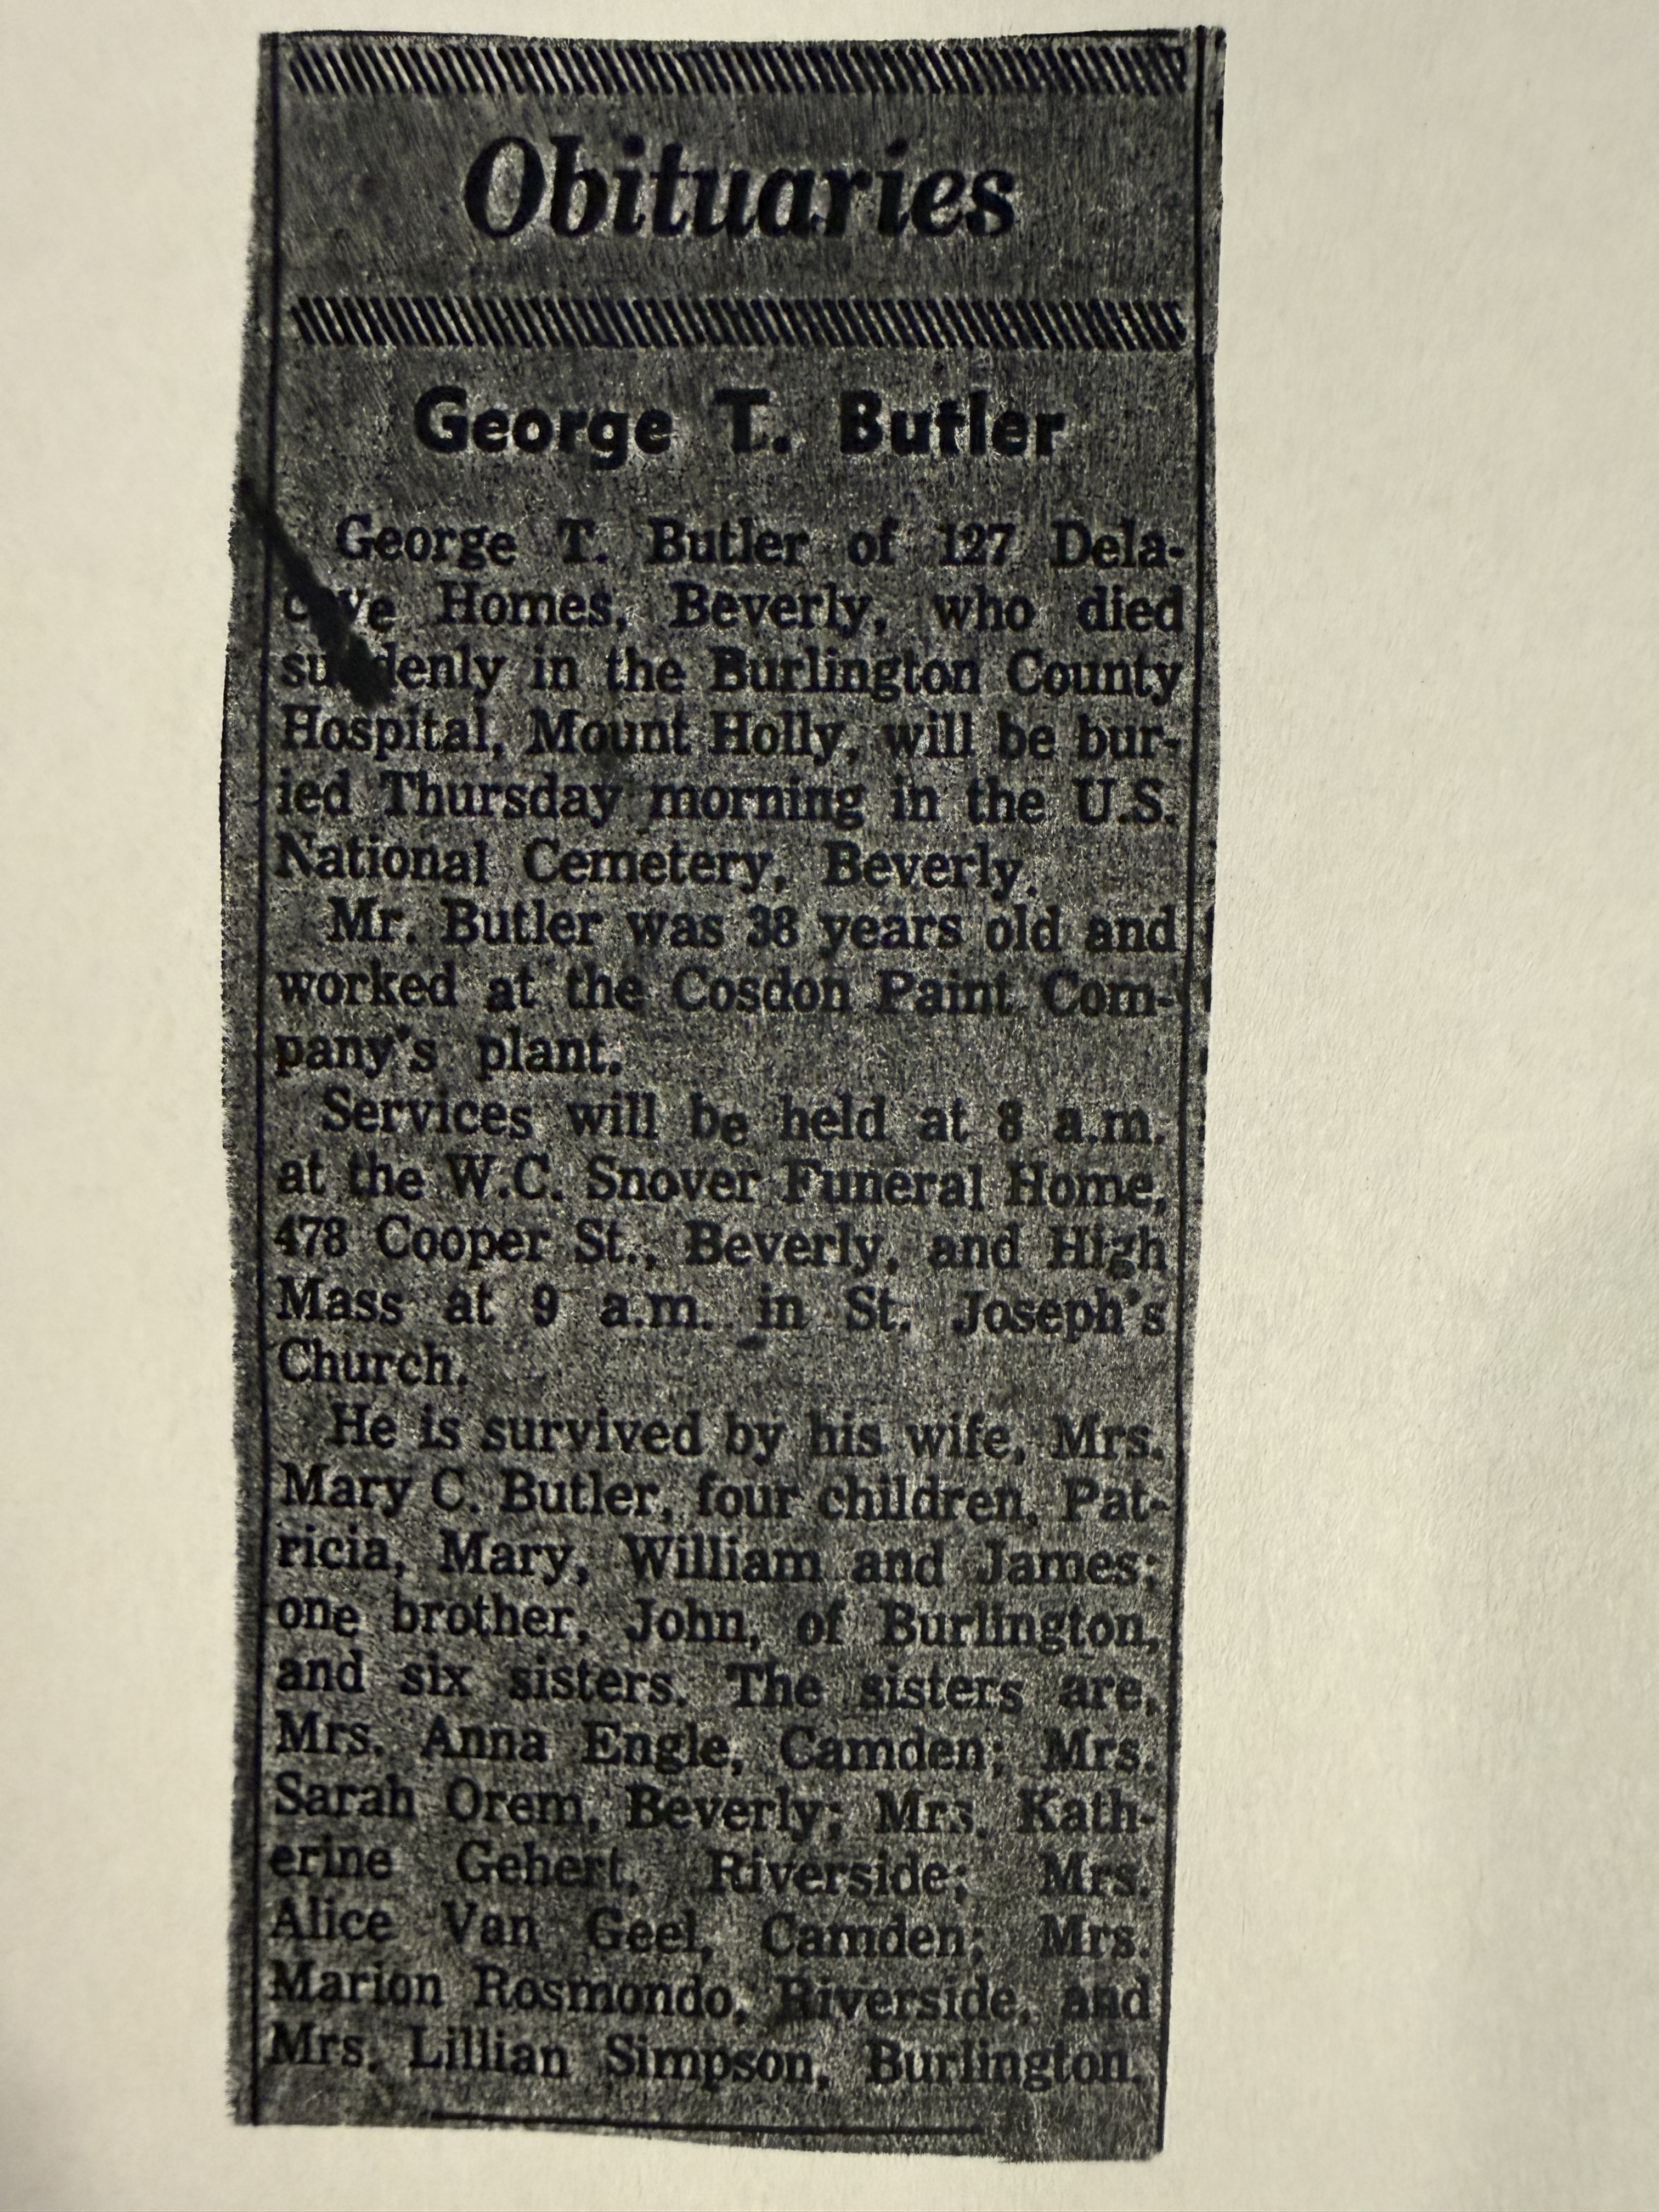 Obituaries
George T. Butler
George T. Butler of 127 Dela-
Homes, Beverly, who died
suddenly in the Burlington County
Hospital, Mount Holly, will be bur-
ied Thursday morning in the U.S.
National Cemetery, Beverly.
Mr. Butler was 38 years old and
worked at the Cosdon Paint Com-
pany's plant.
Services will be held at 8 a.m.
at the W.C. Snover Funeral Home,
478 Cooper St., Beverly, and High
Mass at 9 a.m. in St. Joseph's
Church.
He is survived by his wife, Mrs.
Mary C. Butler, four children, Pat-
ricia, Mary, William and James;
one brother, John, of Burlington,
and six sisters. The sisters are,
Mrs. Anna Engle, Camden; Mrs.
Sarah Orem, Beverly; Mrs. Kath-
erine Gehert, Riverside; Mrs.
Alice Van Geel, Camden; Mrs.
Marion Rosmondo, Riverside, and
Mrs. Lillian Simpson, Burlington.